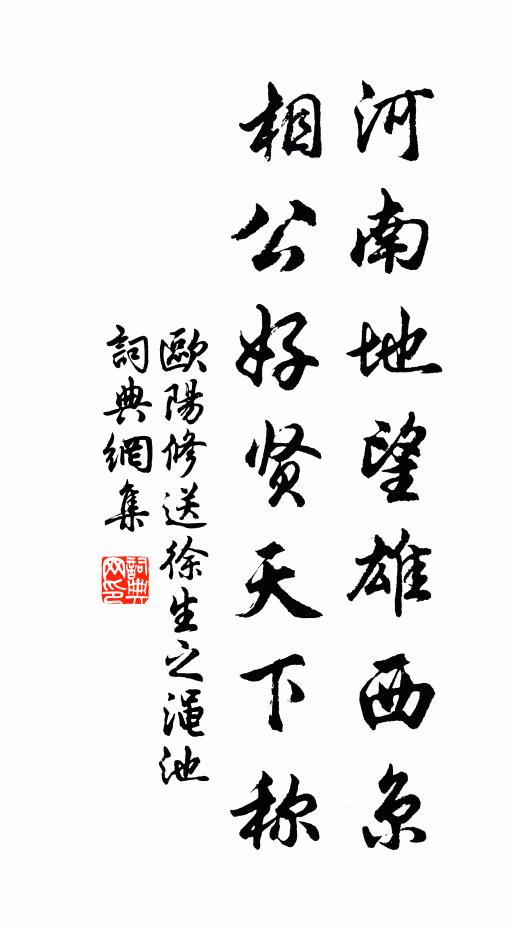 河南地望雄西京
相公好贤天下称
歐陽修送徐生之渑池
詞典網集
詞典
网印